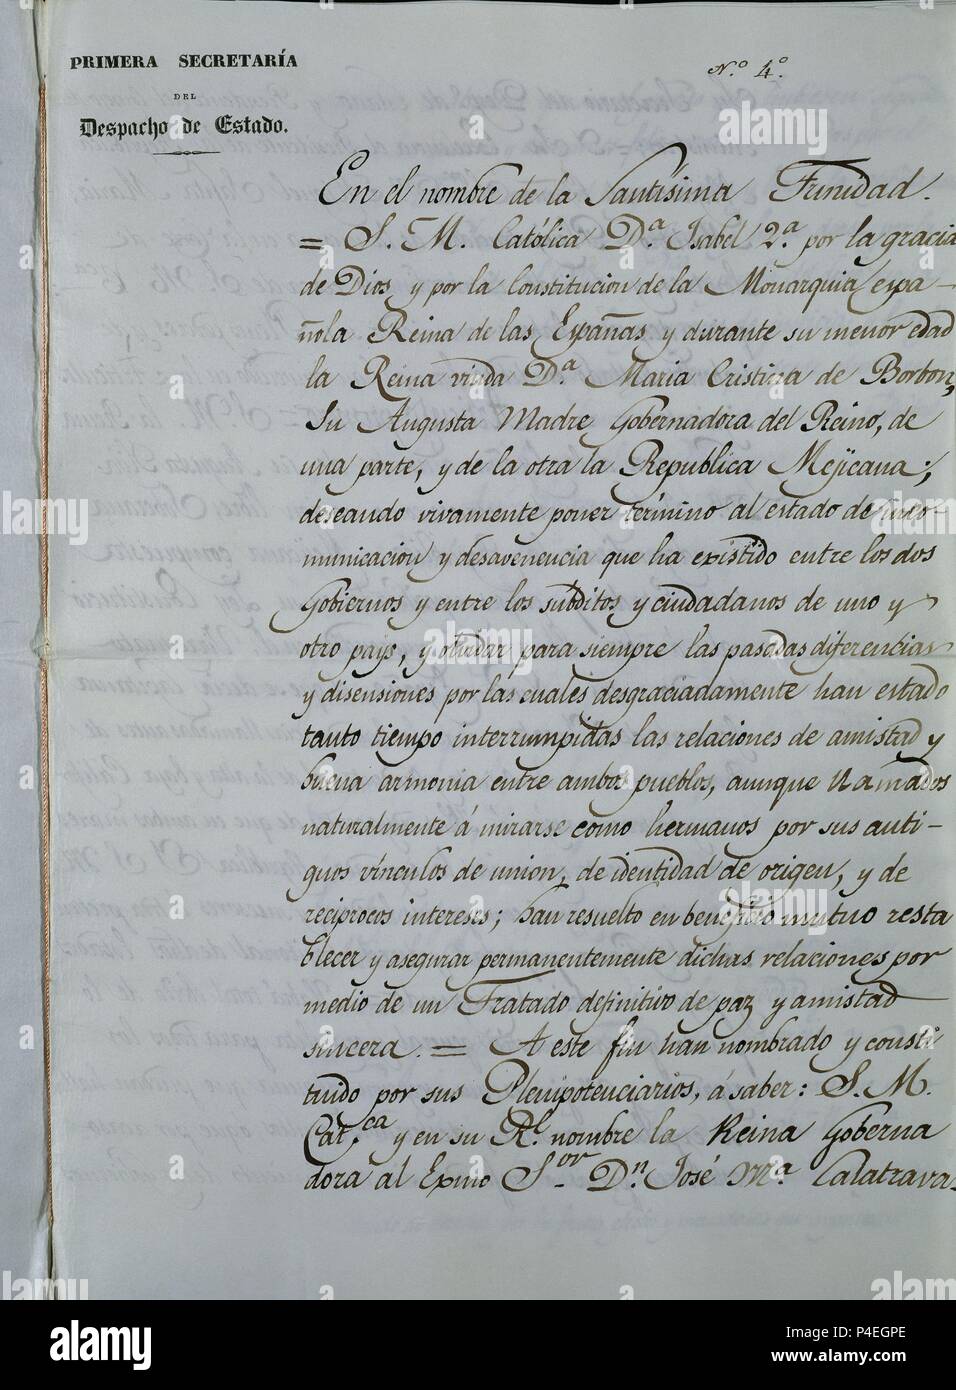 PRIMERA SECRETARÍA
DEL
Despacho de Estado.
N.º 4.º
En el nombre de la Santísima Trinidad.
= S. M. Católica D.ª Isabel 2.ª por la gracia
de Dios y por la Constitucion de la Monarquia espa-
ñola Reina de las Españas y durante su menor edad
la Reina viuda D.ª Maria Cristina de Borbon,
Su Augusta Madre Gobernadora del Reino, de
una parte, y de la otra la Republica Mejicana;
deseando vivamente poner término al estado de inco-
municacion y desavenencia que ha existido entre los dos
Gobiernos y entre los subditos y ciudadanos de uno y
otro pais, y olvidar para siempre las pasadas diferencias
y disensiones por las cuales desgraciadamente han estado
tanto tiempo interrumpidas las relaciones de amistad y
buena armonia entre ambos pueblos, aunque llamados
naturalmente á mirarse como hermanos por sus anti-
guos vínculos de union, de identidad de origen, y de
recíprocos intereses; han resuelto en beneficio mutuo resta
blecer y asegurar permanentemente dichas relaciones por
medio de un Tratado definitivo de paz y amistad
sincera. = A este fin han nombrado y consti-
tuido por sus Plenipotenciarios, á saber: S. M.
Cat.ca y en su Rl. nombre la Reina Goberna
dora al Exmo Sor Dn. José Mª Calatrava
alamy
P4EGPE
www.alamy.com